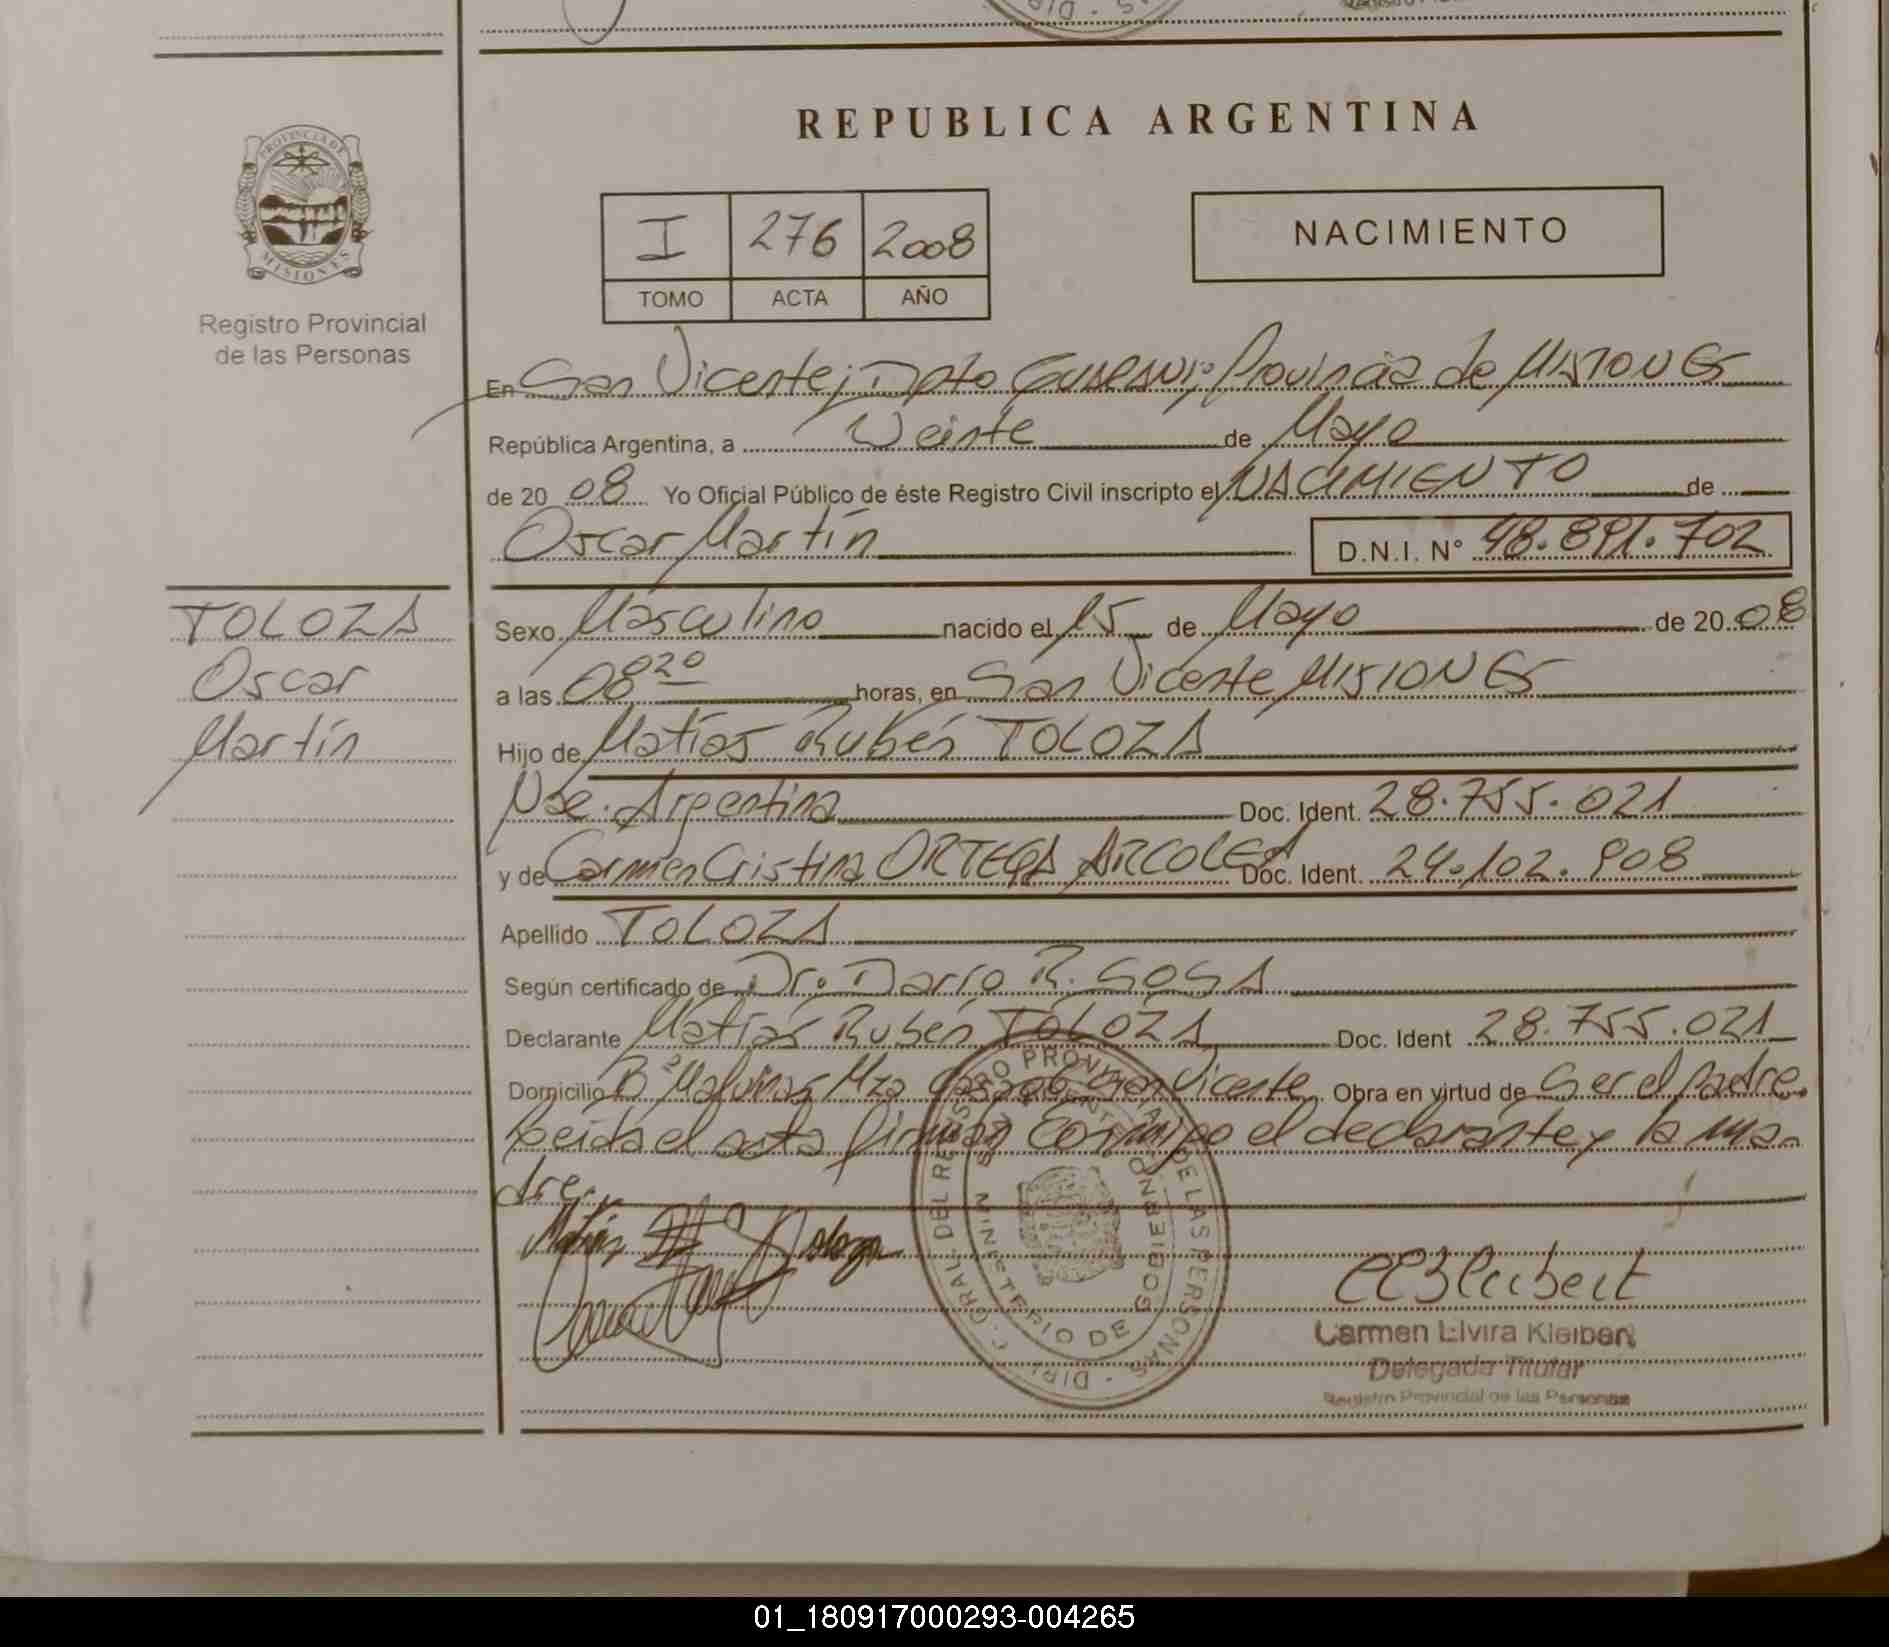 REPUBLICA ARGENTINA
PROVINCIA DE
MISIONES
Registro Provincial
de las Personas
I 276 2008
TOMO ACTA AÑO
NACIMIENTO
En San Vicente; Dpto Guaraní; Provincia de MISIONES
República Argentina, a Veinte de Mayo
de 20 08 Yo Oficial Público de éste Registro Civil inscripto el NACIMIENTO de
Oscar Martín D.N.I. N° 48.891.702
TOLOZA
Oscar
Martín
Sexo Masculino nacido el 15 de Mayo de 20 08
a las 08 20 horas, en San Vicente MISIONES
Hijo de Matías Rubén TOLOZA
Nac. Argentina Doc. Ident. 28.755.021
y de Carmen Cristina ORTEGA ARCOLEA Doc. Ident. 24.102.908
Apellido TOLOZA
Según certificado de Dr. Darío R. SOSA
Declarante Matías Rubén TOLOZA Doc. Ident 28.755.021
Domicilio B° Malvinas Mza San Vicente Obra en virtud de Ser el padre.
Leída el acta firman conmigo el declarante y la ma-
dre.
Matías Toloza
DIR. GRAL. DEL REGISTRO PROVINCIAL DE LAS PERSONAS
MINISTERIO DE GOBIERNO
Carmen Elvira Kleibert
Delegada Titular
Registro Provincial de las Personas
01_180917000293-004265